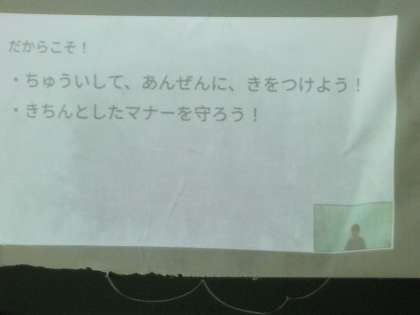 だからこそ！
・ちゅういして、あんぜんに、きをつけよう！
・きちんとしたマナーを守ろう！